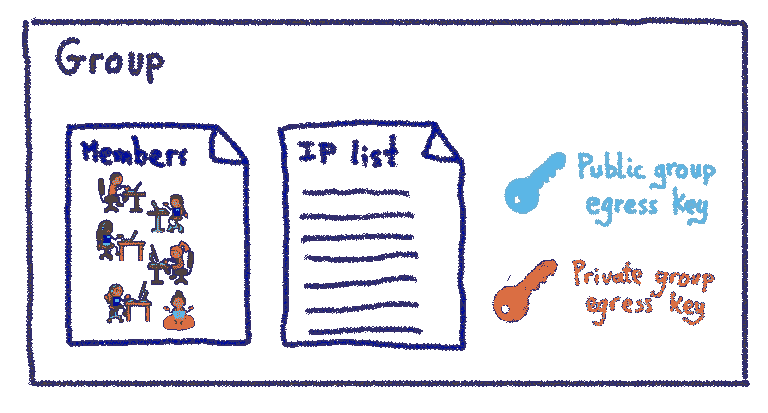 Group
Members
IP list
Public group
egress key
Private group
egress key